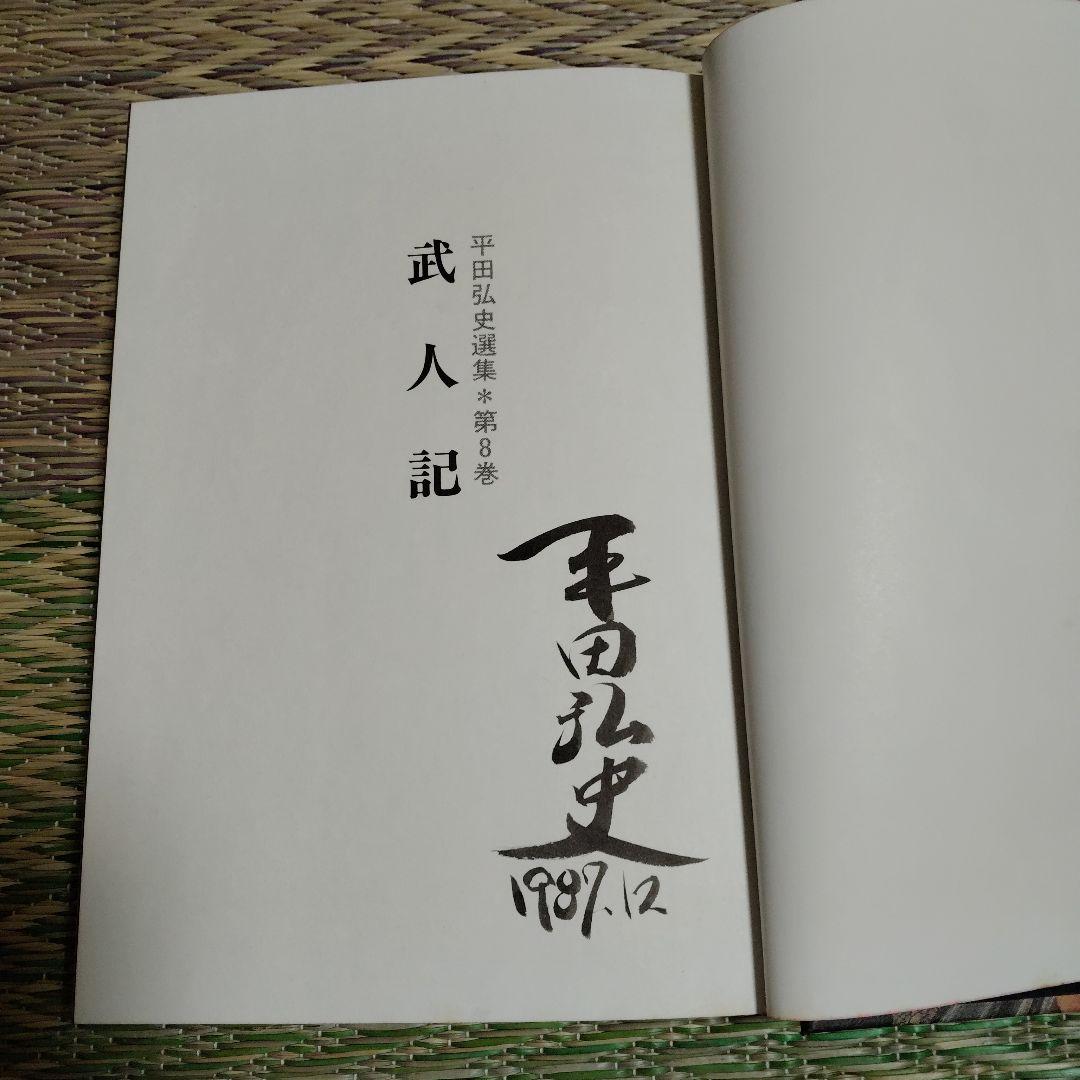 平田弘史選集＊第8巻
武人記
平田弘史
1987.12